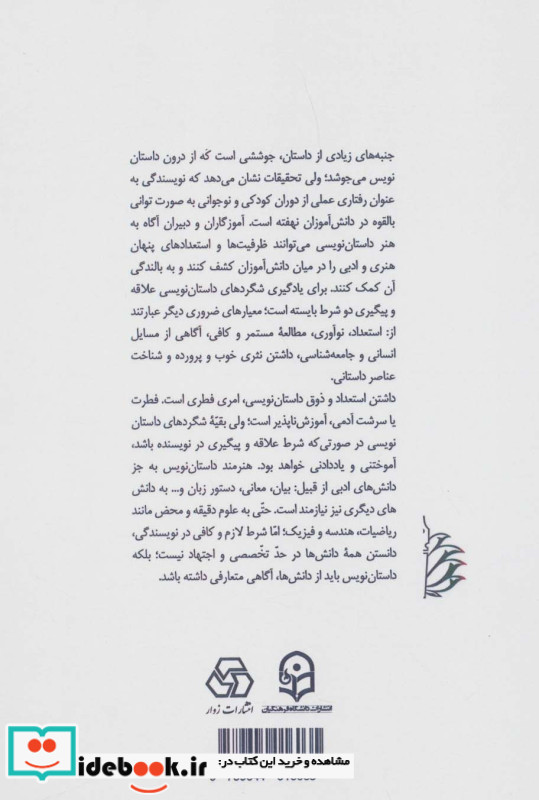 جنبه‌های زیادی از داستان، جوششی است که از درون داستان
نویس می‌جوشد؛ ولی تحقیقات نشان می‌دهد که نویسندگی به
عنوان رفتاری عملی از دوران کودکی و نوجوانی به صورت توانی
بالقوه در دانش‌آموزان نهفته است. آموزگاران و دبیران آگاه به
هنر داستان‌نویسی می‌توانند ظرفیت‌ها و استعدادهای پنهان
هنری و ادبی را در میان دانش‌آموزان کشف کنند و به بالندگی
آن کمک کنند. برای یادگیری شگردهای داستان‌نویسی علاقه
و پیگیری دو شرط بایسته است؛ معیارهای ضروری دیگر عبارتند
از: استعداد، نوآوری، مطالعهٔ مستمر و کافی، آگاهی از مسایل
انسانی و جامعه‌شناسی، داشتن نثری خوب و پرورده و شناخت
عناصر داستانی.
داشتن استعداد و ذوق داستان‌نویسی، امری فطری است. فطرت
یا سرشت آدمی، آموزش‌ناپذیر است؛ ولی بقیّهٔ شگردهای داستان
نویسی در صورتی‌که شرط علاقه و پیگیری در نویسنده باشد،
آموختنی و یاددادنی خواهد بود. هنرمند داستان‌نویس به جز
دانش‌های ادبی از قبیل: بیان، معانی، دستور زبان و... به دانش
های دیگری نیز نیازمند است. حتّی به علوم دقیقه و محض مانند
ریاضیات، هندسه و فیزیک؛ امّا شرط لازم و کافی در نویسندگی،
دانستن همهٔ دانش‌ها در حدّ تخّصصی و اجتهاد نیست؛ بلکه
داستان‌نویس باید از دانش‌ها، آگاهی متعارفی داشته باشد.
انتشارات دانشگاه فرهنگیان
انتشارات زوار
مشاهده و خرید این کتاب در:
idebook.ir